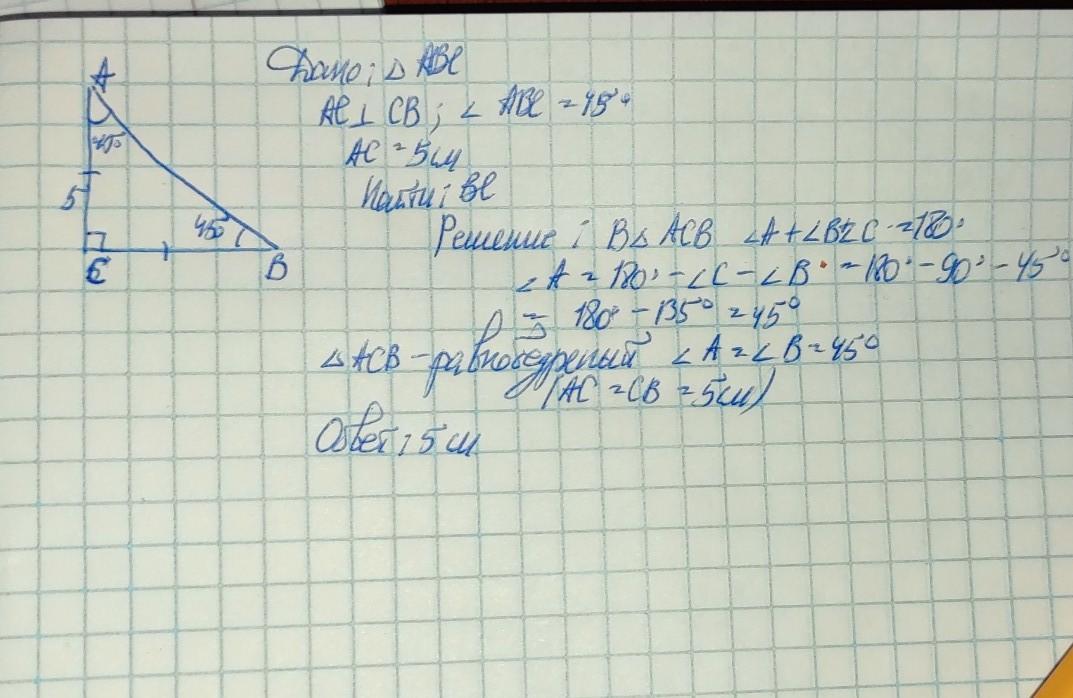 A
45°
5
45°
C
B
Дано: △ ABC
AC ⊥ CB; ∠ ABC = 45°
AC = 5 см
Найти: BC
Решение: В △ ACB ∠A + ∠B ∠C = 180°
∠A = 180° - ∠C - ∠B = 180° - 90° - 45°
= 180° - 135° = 45°
△ ACB - равнобедреный, ∠A = ∠B = 45°
(AC = CB = 5 см)
Ответ: 5 см